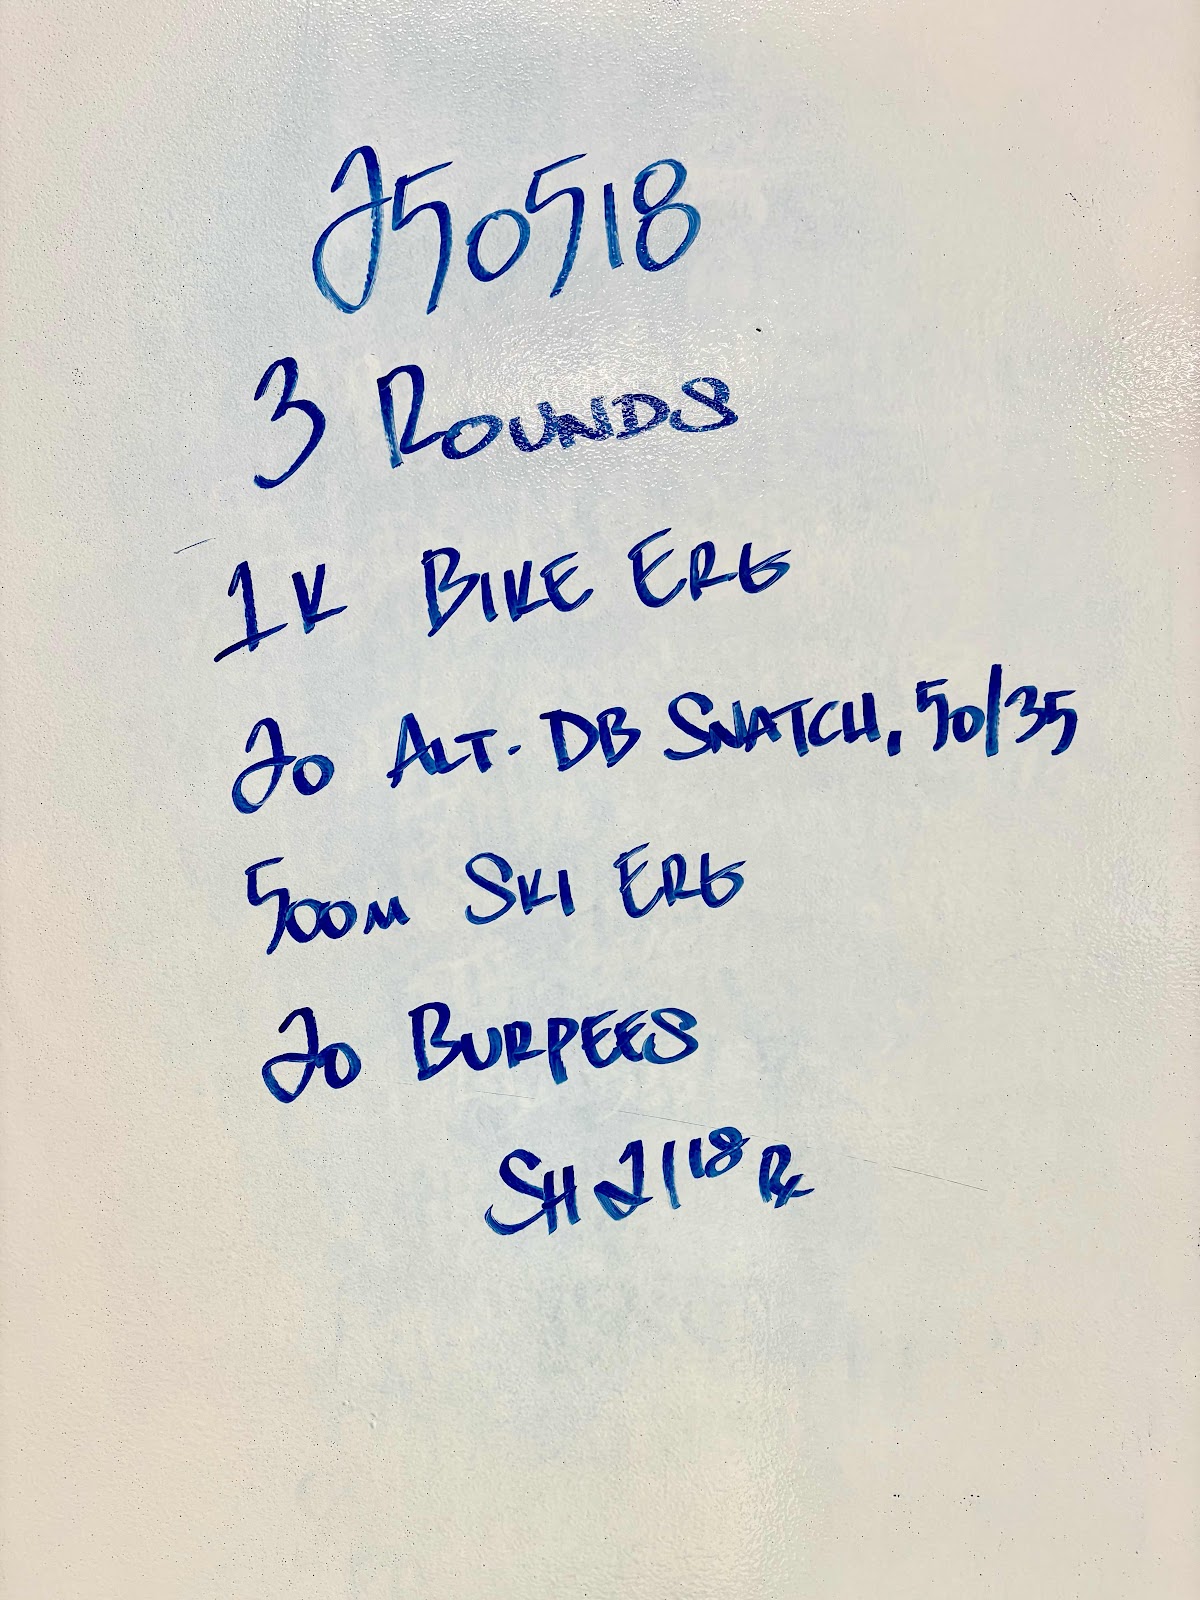 250518
3 ROUNDS
1K BIKE ERG
20 ALT. DB SNATCH, 50/35
500M SKI ERG
20 BURPEES
SH 21 18 Rx